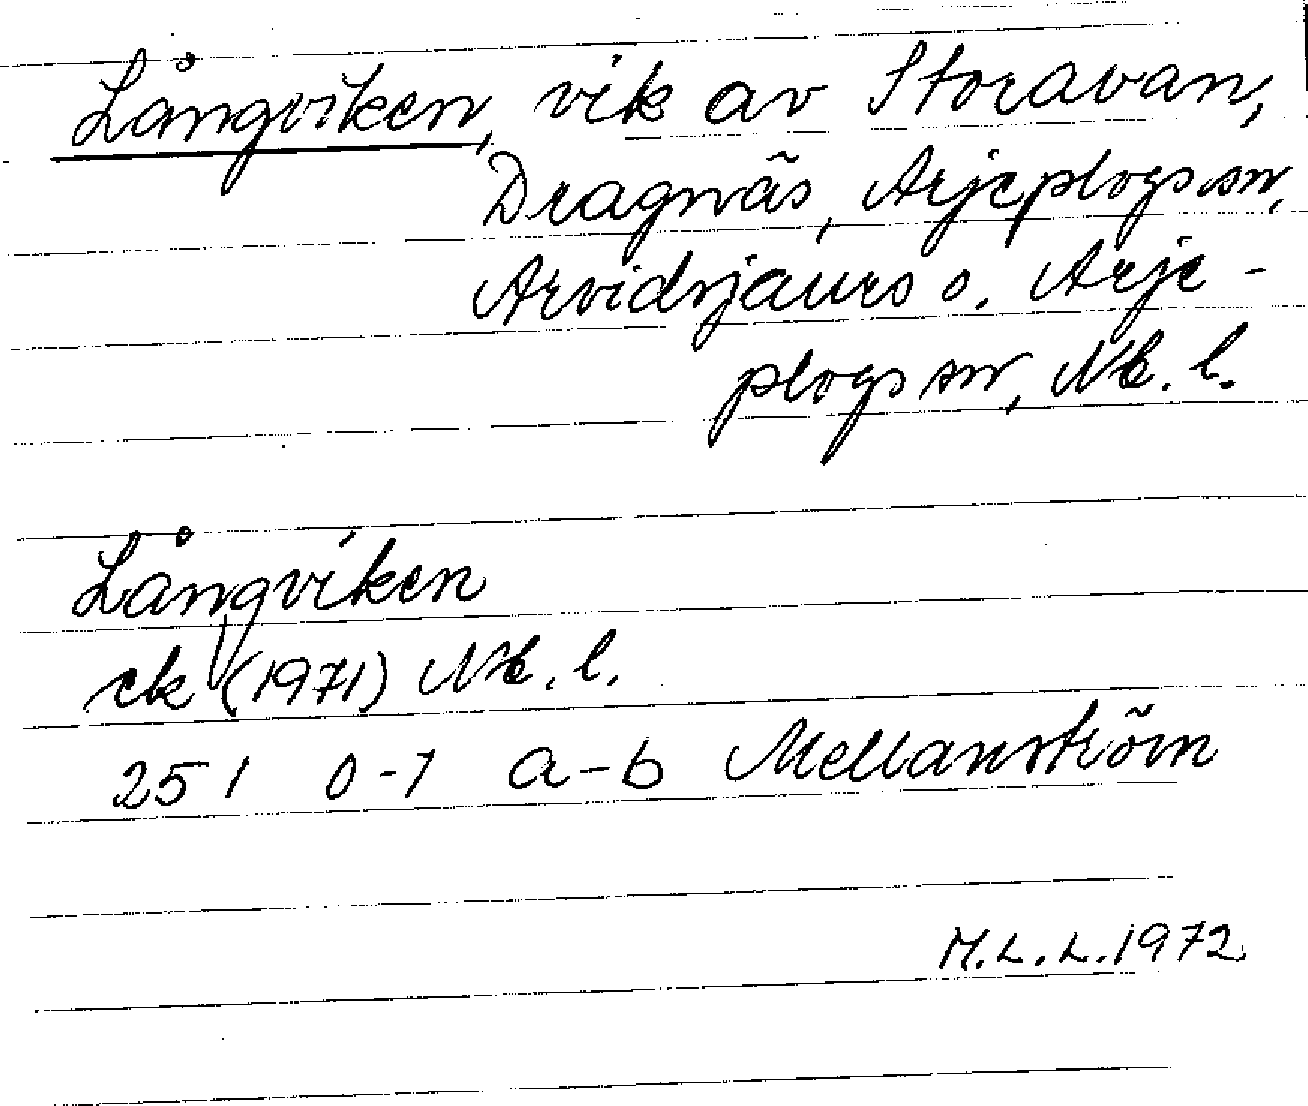 Långviken, vik av Storavan,
Dragnäs, Arjeplogs sn,
Arvidsjaurs o. Arje-
plogs sn, Nb. l.
Långviken
ek (1971) Nb. l.
25 I 0-1 a-b Mellanström
M.L.L. 1972